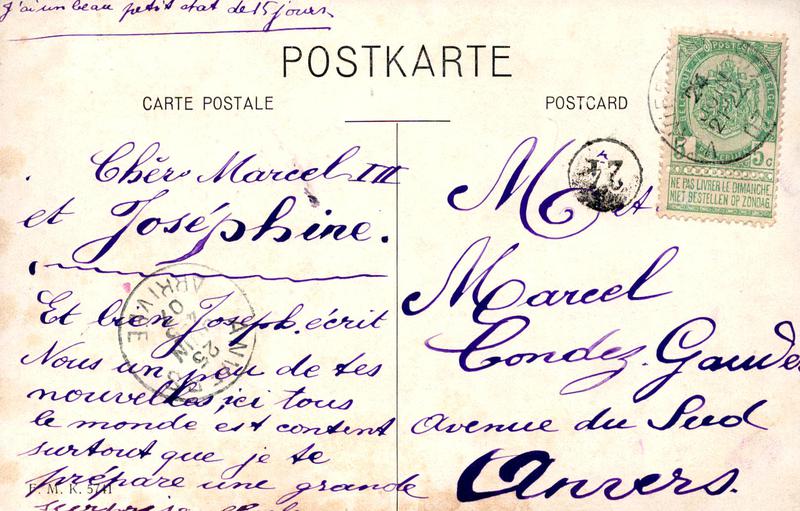 J'ai un beau petit etat de 15 jours.
POSTKARTE
CARTE POSTALE
POSTCARD
BELGIQUE
5 c
NE PAS LIVRER LE DIMANCHE
NIET BESTELLEN OP ZONDAG
Chèrs Marcel III
et Joséphine.
Et bien Joseph. écrit
Nous un peu de tes
nouvelles, ici tous
le monde est content
surtout que je te
prépare une grande
surprise
F. M. K.
M et
Marcel
Condez. Gauder
avenue du Sud
Anvers.
ARRIVÉE
25
JUIN
07